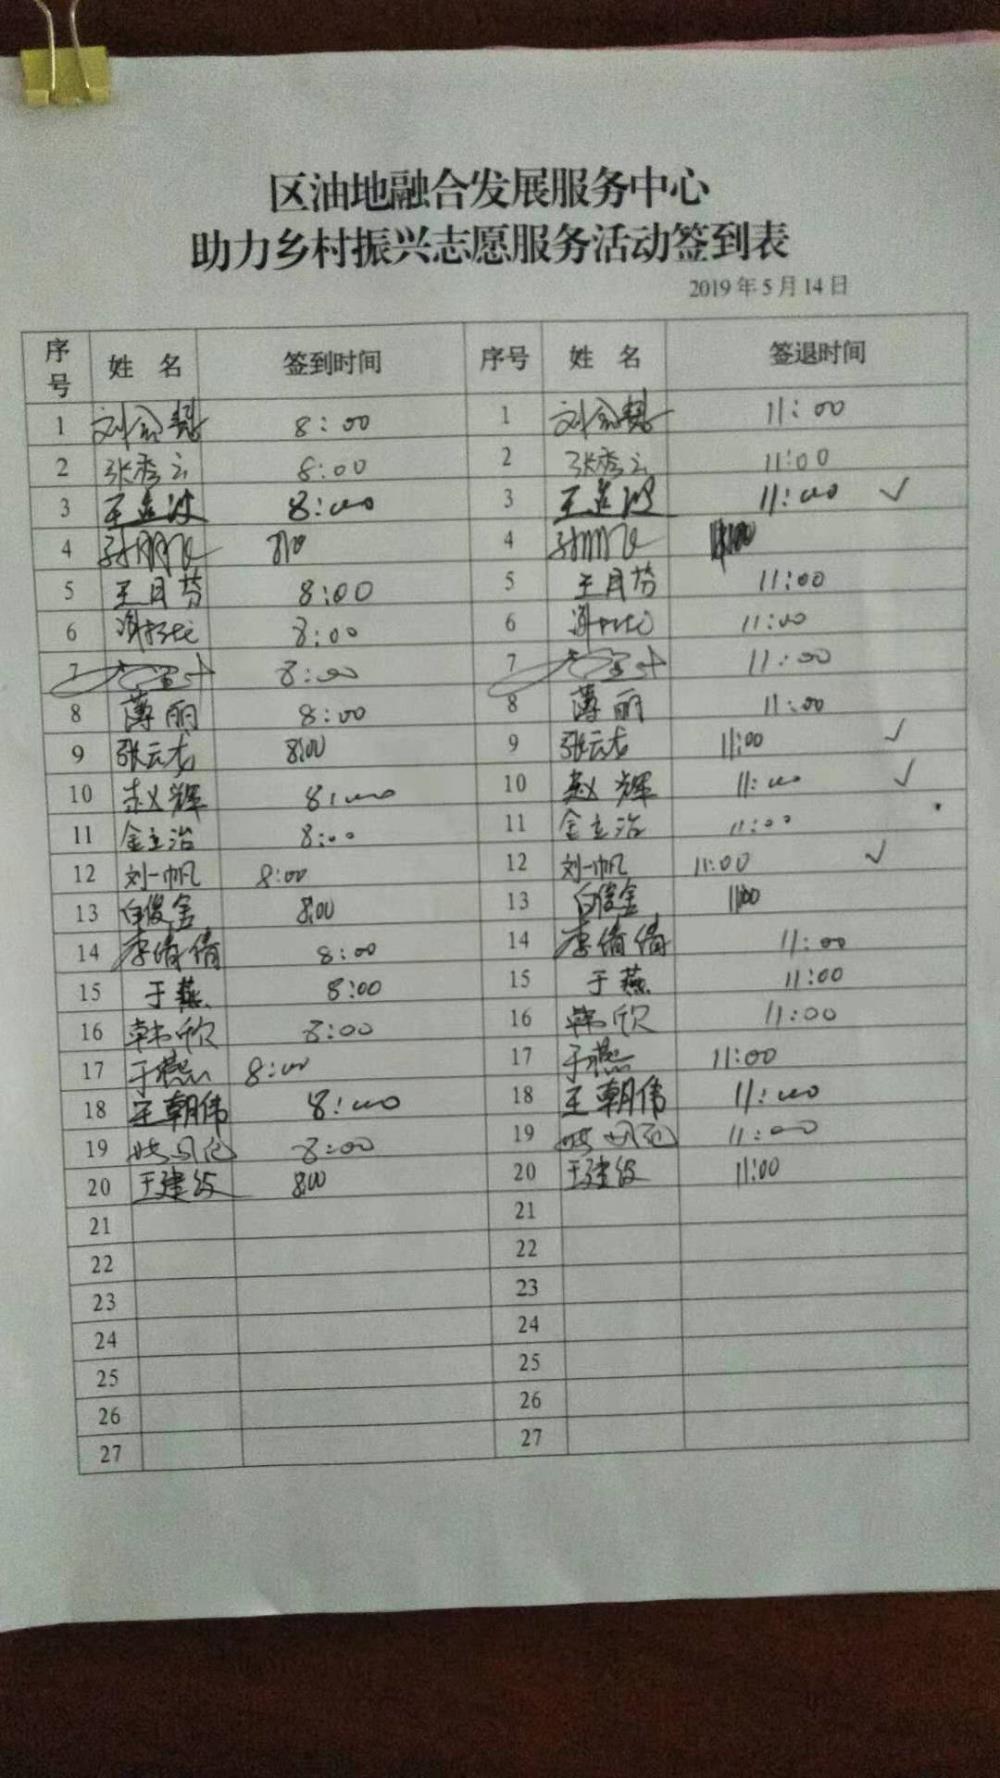 区油地融合发展服务中心
助力乡村振兴志愿服务活动签到表
2019年5月14日
序号 姓 名 签到时间 序号 姓 名 签退时间
1 8:00 1 11:00
2 张秀云 8:00 2 张秀云 11:00
3 8:00 3 11:00 ✓
4 4
5 王月芬 8:00 5 王月芬 11:00
6 8:00 6 11:00
7 8:00 7 11:00
8 薄丽 8:00 8 薄丽 11:00
9 张云龙 8:00 9 张云龙 11:00 ✓
10 赵辉 8:00 10 赵辉 11:00 ✓
11 金立治 8:00 11 金立治 11:00
12 刘一帆 8:00 12 刘一帆 11:00 ✓
13 白俊金 8:00 13 白俊金 11:00
14 李倩倩 8:00 14 李倩倩 11:00
15 于燕 8:00 15 于燕 11:00
16 韩欣 8:00 16 韩欣 11:00
17 于燕 8:00 17 于燕 11:00
18 王朝伟 8:00 18 王朝伟 11:00
19 8:00 19 11:00
20 王建波 8:00 20 王建波 11:00
21 21
22 22
23 23
24 24
25 25
26 26
27 27